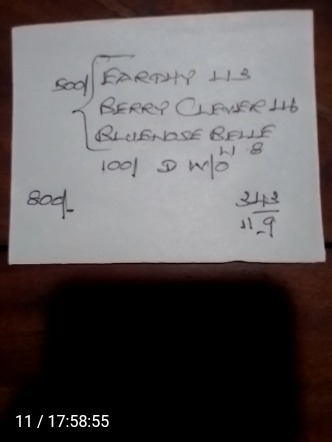 500/ { EARTHY 4/3
BERRY CLEVER 4/6
BLUENOSE BELLE
4/8
100/ D W/O
800/-
343
11-9
11 / 17:58:55